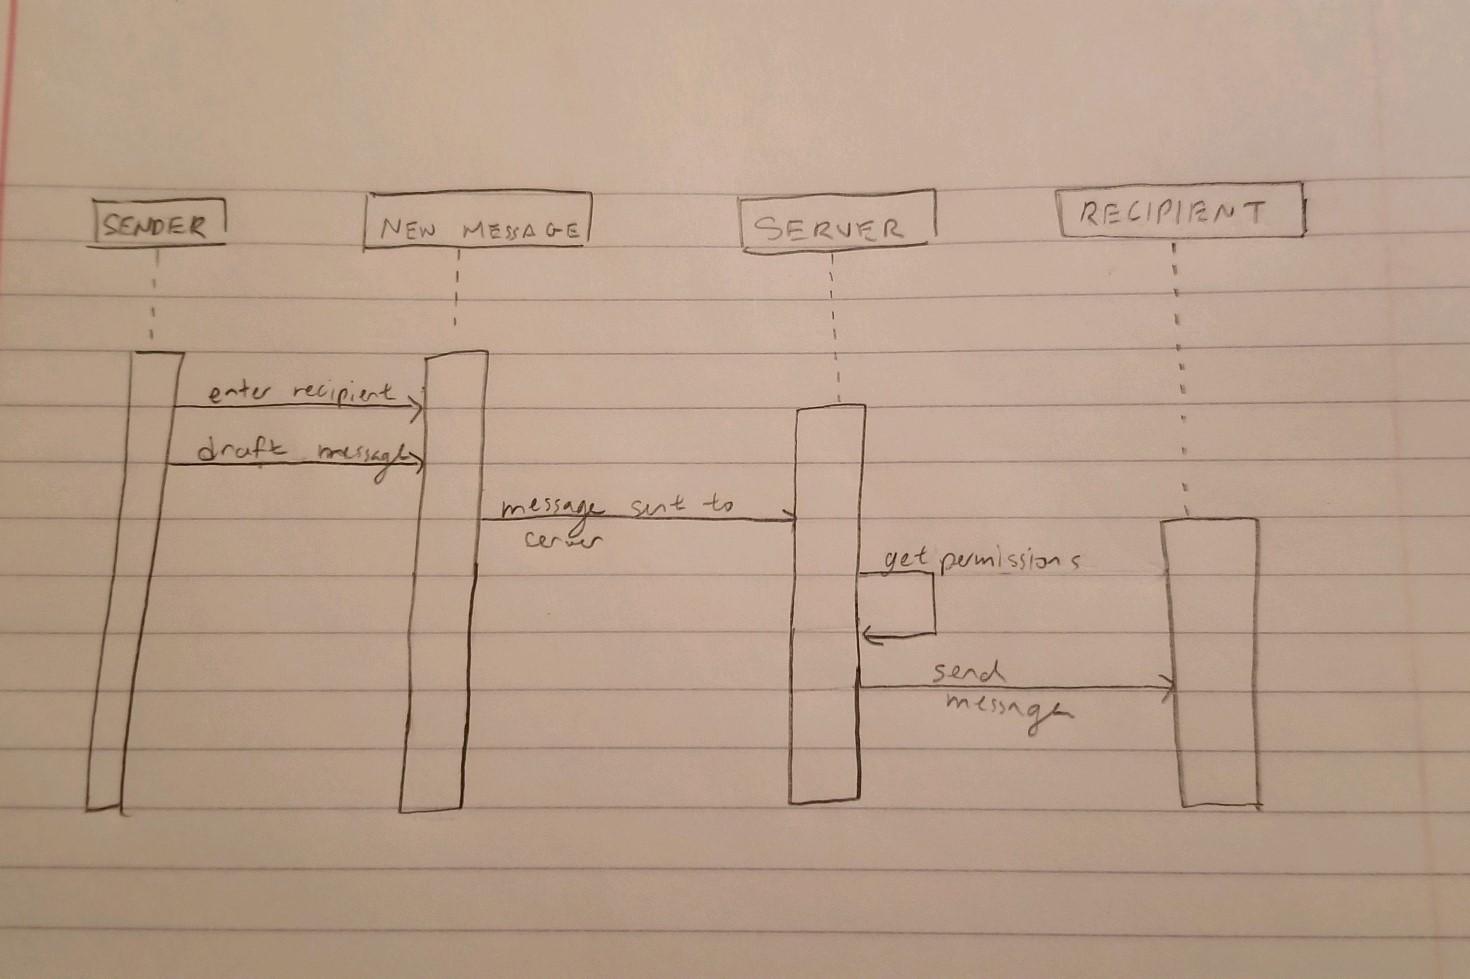 SENDER
NEW MESSAGE
SERVER
RECIPIENT
enter recipient
draft message
message sent to
cerver
get permissions
send
message